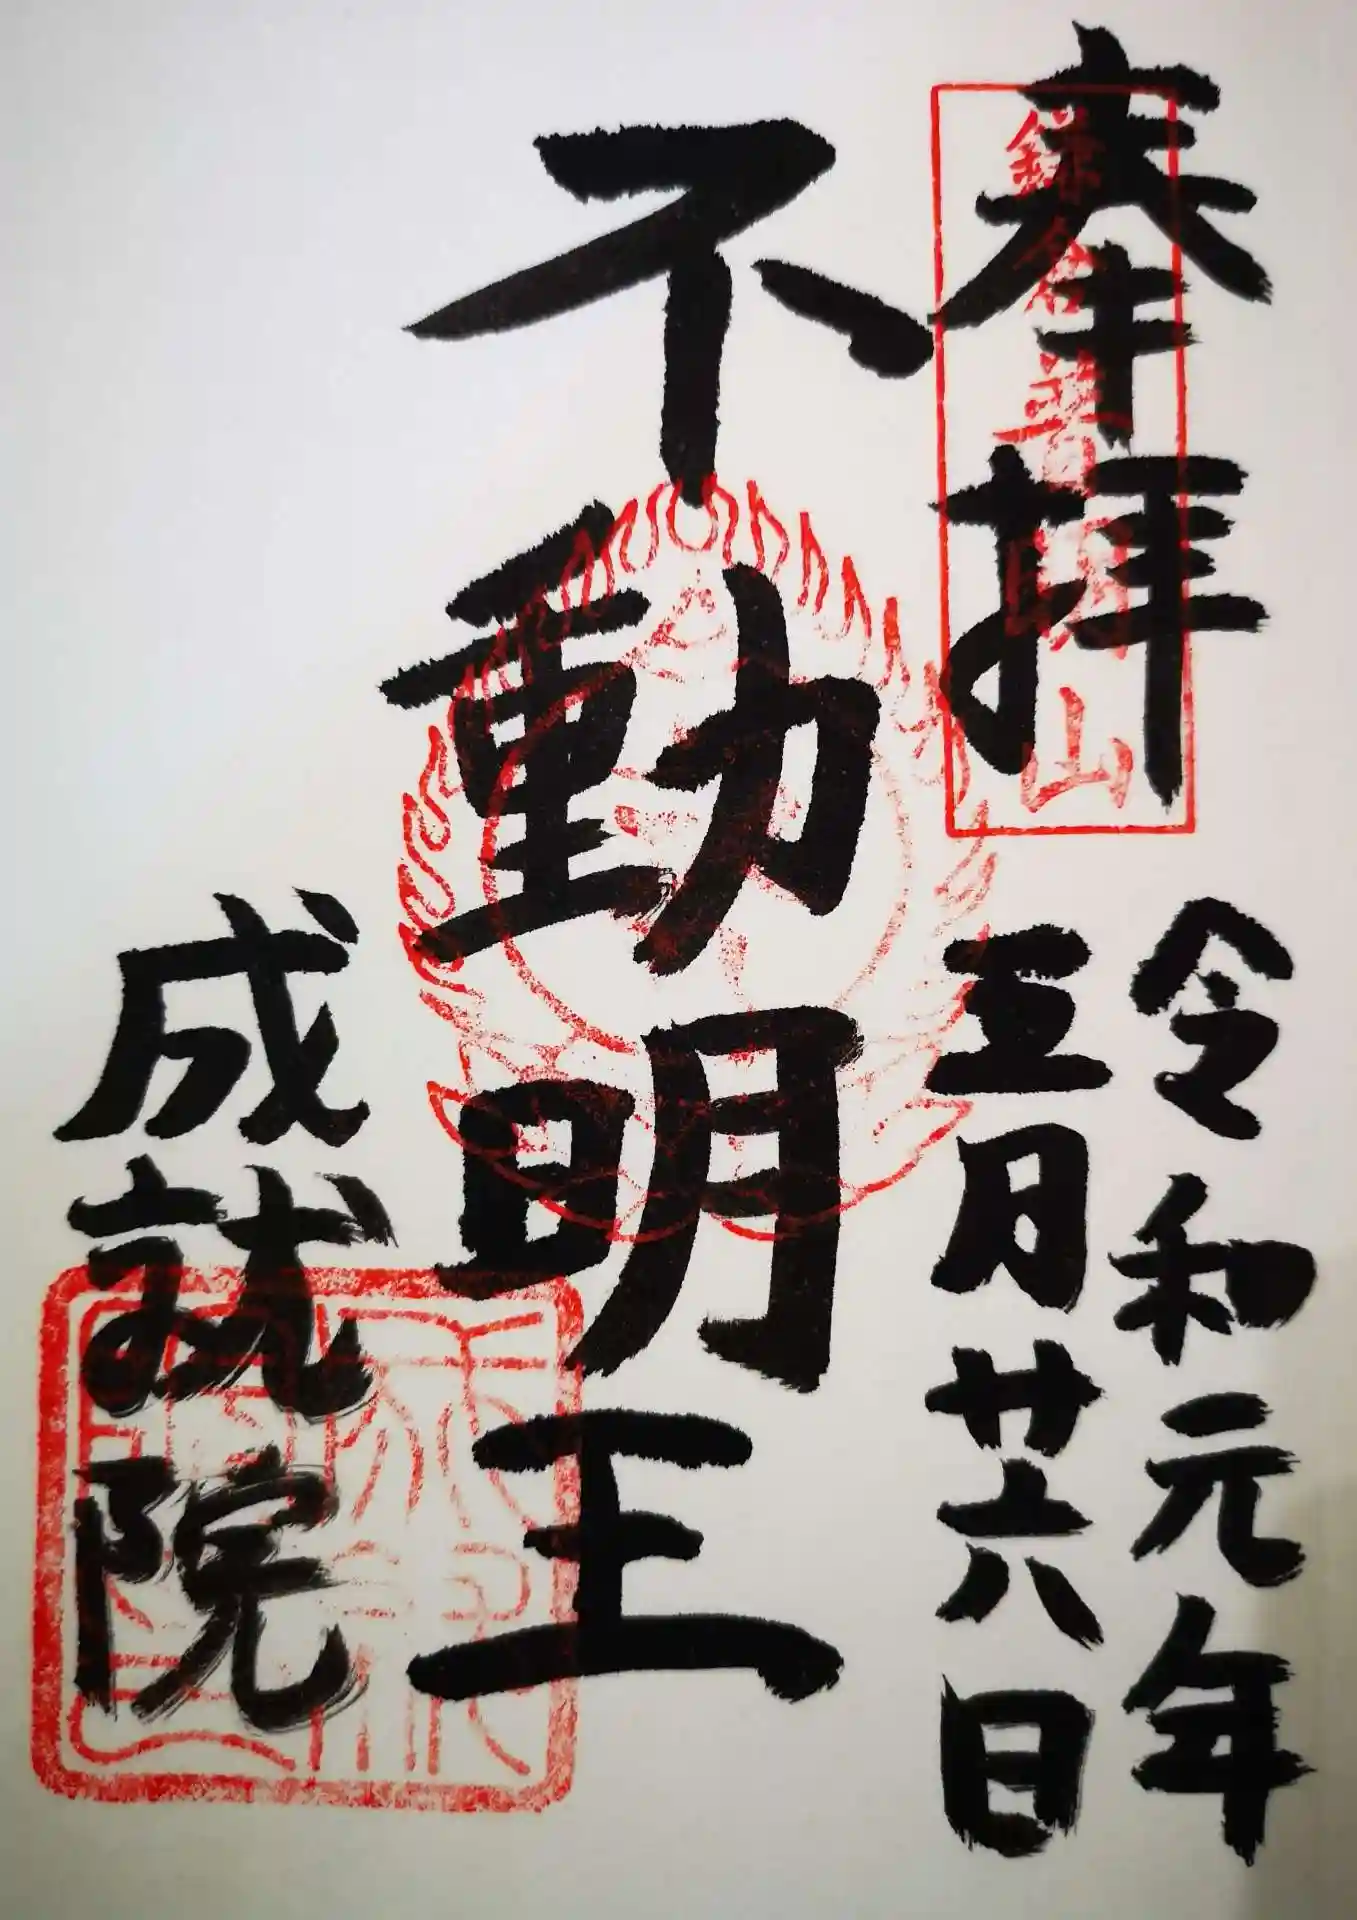 奉拝
鎌倉普明山
令和元年
五月廿六日
不動明王
成就院